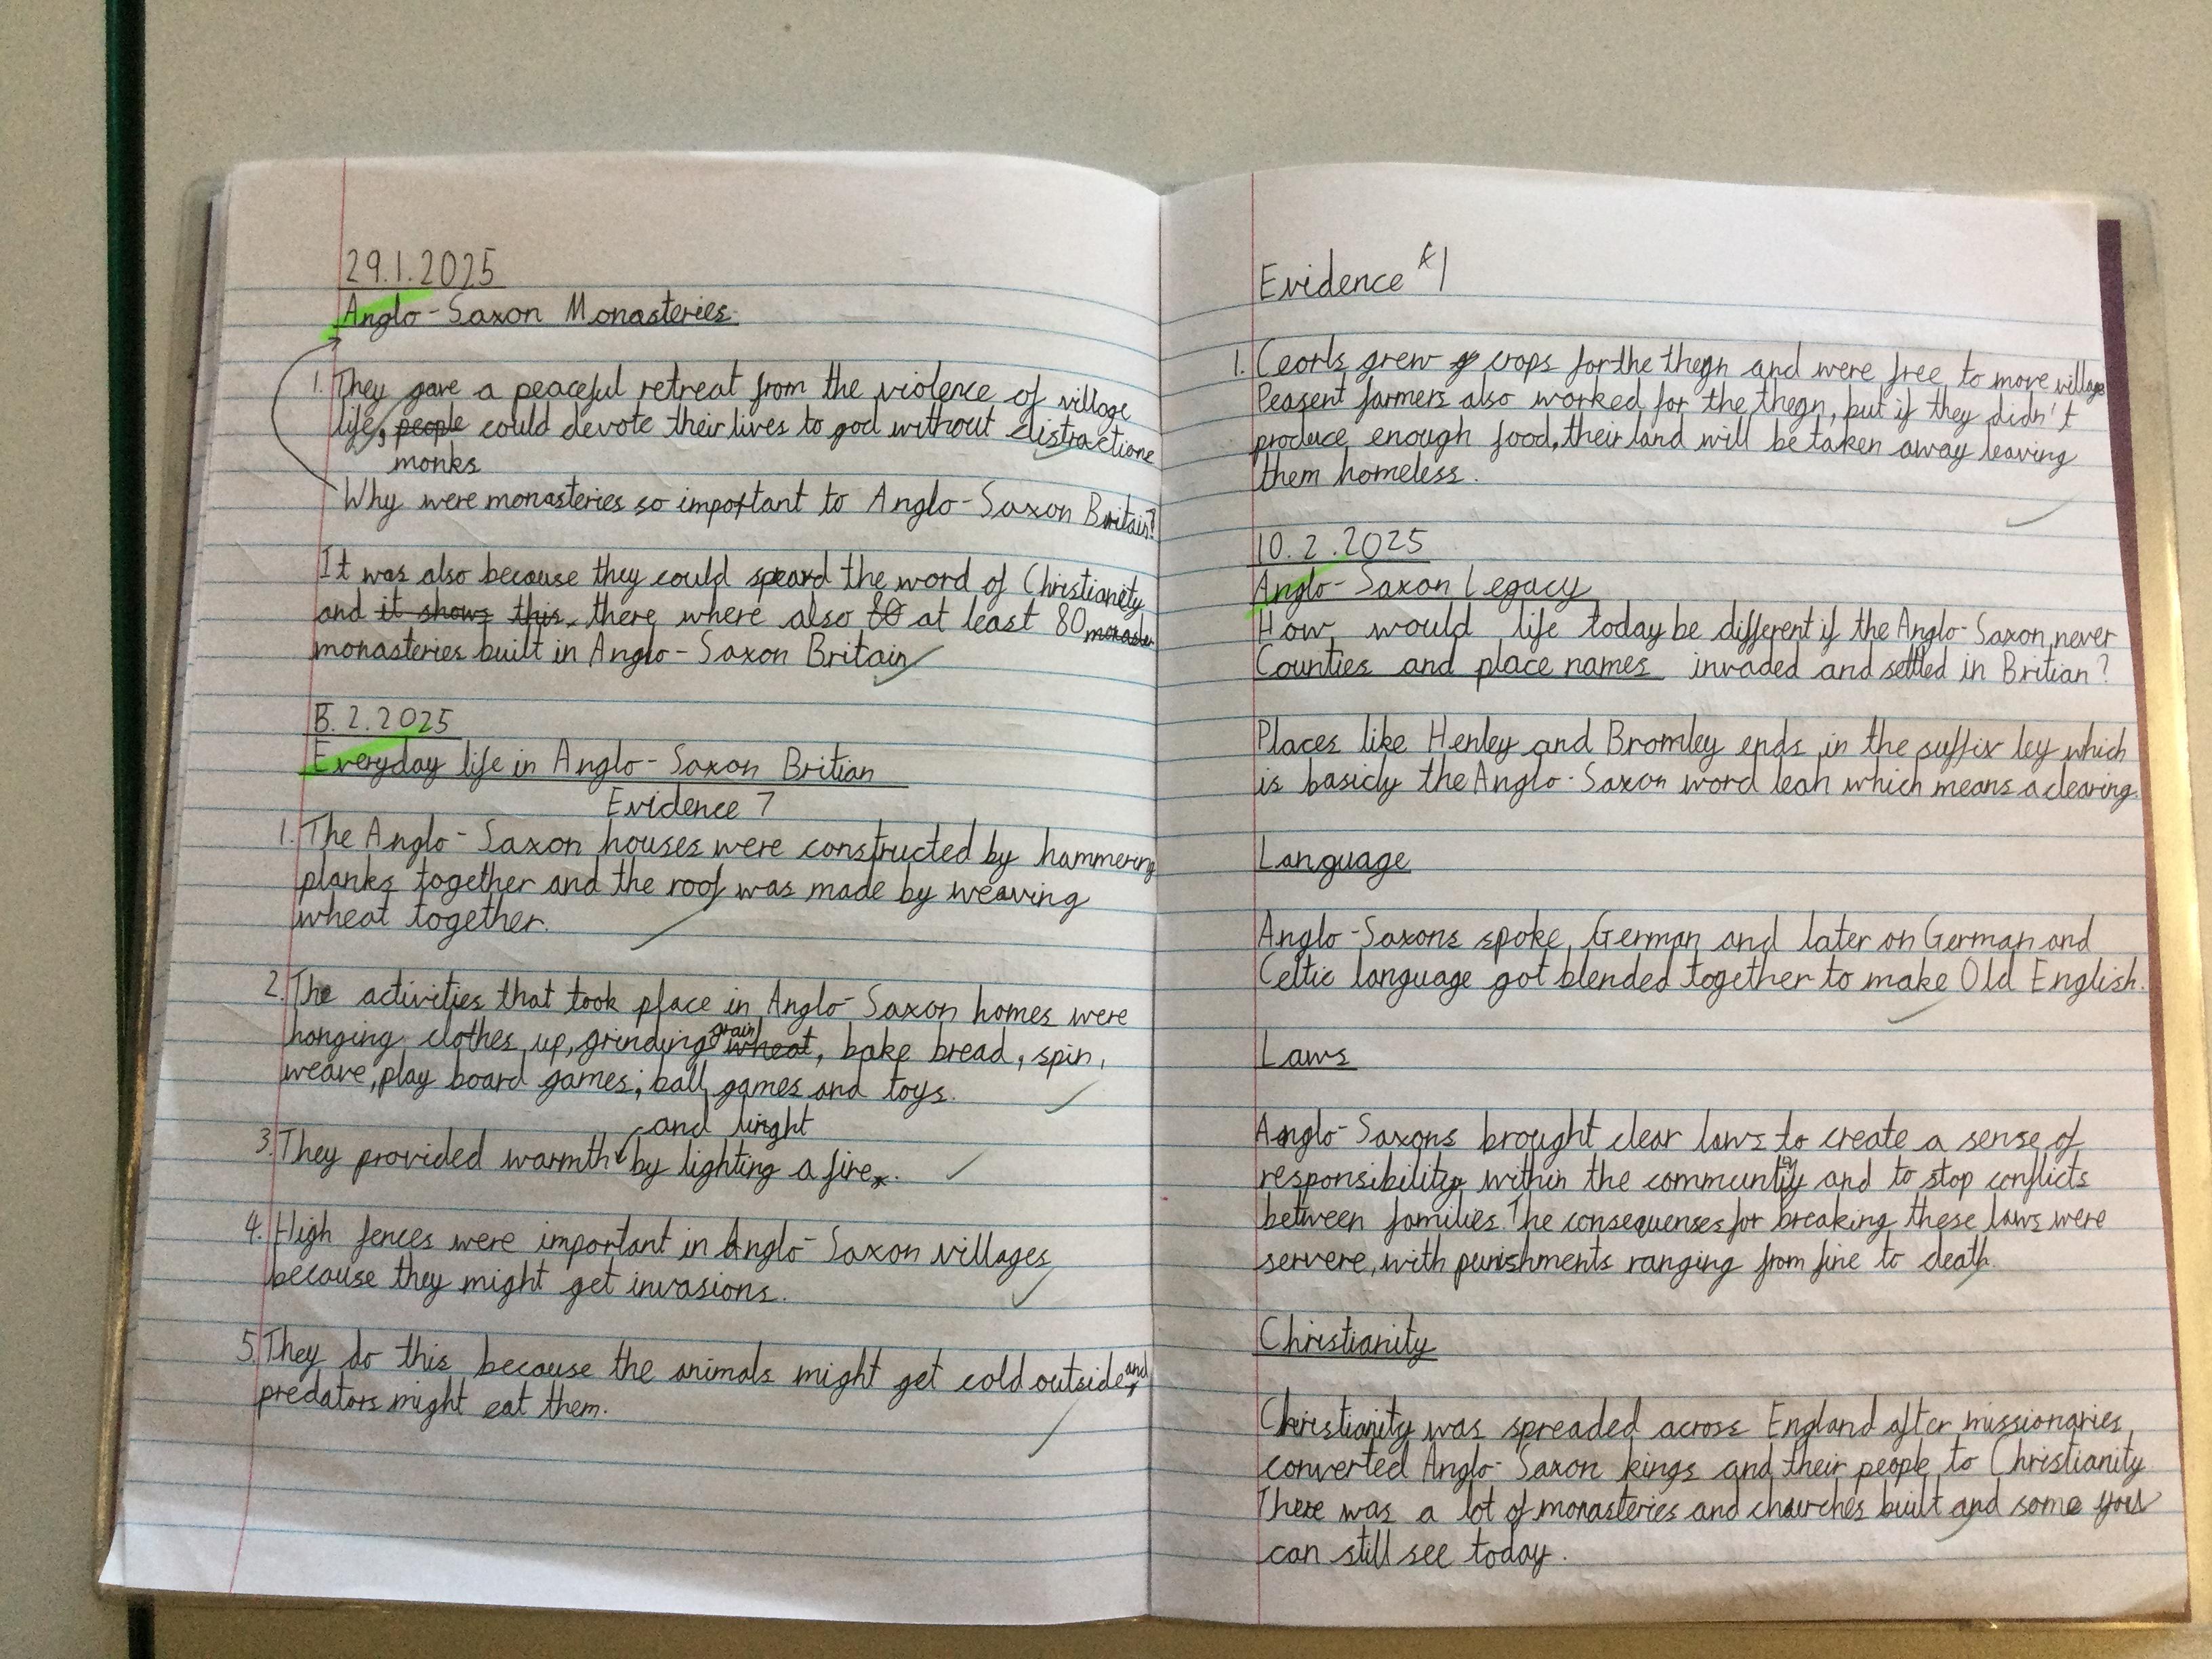 29.1.2025
Anglo-Saxon Monasteries
1. They gave a peaceful retreat from the violence of village
life, people could devote their lives to god without distractions
monks
Why were monasteries so important to Anglo-Saxon Britain?
It was also because they could spread the word of Christianity
and it shows this. there where also 80 at least 80
monasteries built in Anglo-Saxon Britain
5.2.2025
Everyday life in Anglo-Saxon Britian
Evidence 7
1. The Anglo-Saxon houses were constructed by hammering
planks together and the roof was made by weaving
wheat together.
2. The activities that took place in Anglo-Saxon homes were
grain
hanging clothes up, grinding wheat, bake bread, spin,
weave, play board games, ball games and toys.
and linght
3. They provided warmth by lighting a fire.
4. High fences were important in Anglo-Saxon villages
because they might get invasions.
5. They do this because the animals might get cold outside and
predators might eat them.
Evidence 1
1. Ceorls grew crops for the thegn and were free to move village
Peasent farmers also worked for the thegn, but if they didn't
produce enough food, their land will be taken away leaving
them homeless.
10.2.2025
Anglo-Saxon Legacy
How would life today be different if the Anglo-Saxon never
Counties and place names invaded and settled in Britian?
Places like Henley and Bromley ends in the suffix ley which
is basicly the Anglo-Saxon word leah which means a clearing.
Language
Anglo-Saxons spoke German and later on German and
Celtic language got blended together to make Old English.
Laws
Anglo-Saxons brought clear laws to create a sense of
responsibility within the community and to stop conflicts
between families. The consequenses for breaking these laws were
servere, with punishments ranging from fine to death.
Christianity
Christianity was spreaded across England after missionaries
converted Anglo-Saxon kings and their people to Christianity
There was a lot of monasteries and churches built and some you
can still see today.